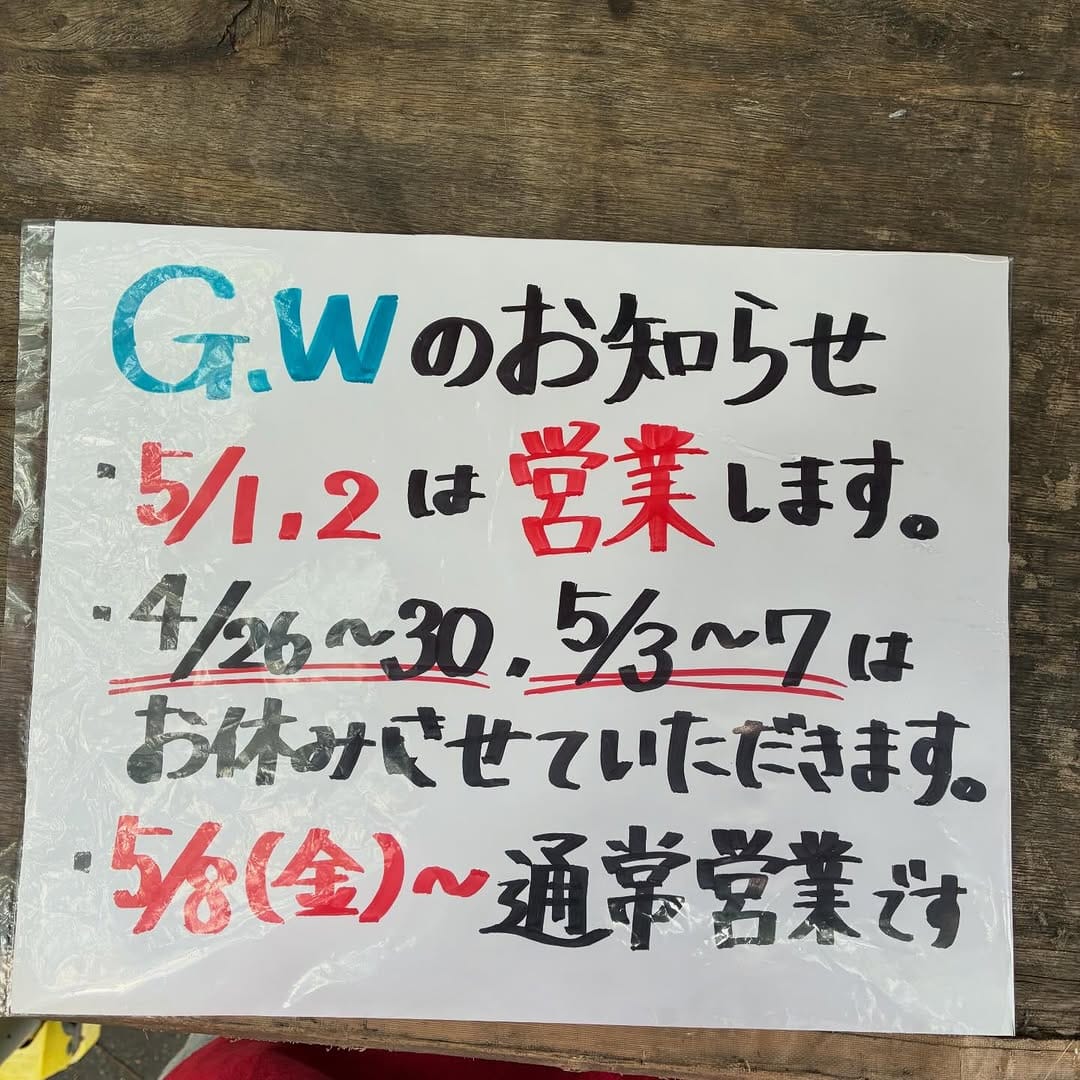 G.Wのお知らせ
・5/1.2は営業します。
・4/26~30.5/3~7は
お休みさせていただきます。
・5/8(金)~通常営業です